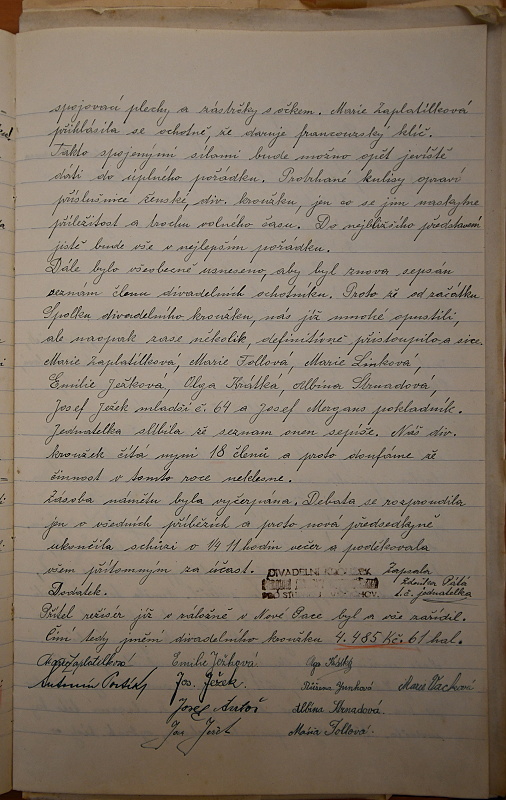 spojovací plechy a zástrčky s očkem. Marie Zaplatílková
přihlásila se ochotně, že daruje francouzský klíč.
Takto spojenými silami bude možno opět jeviště
dáti do úplného pořádku. Protrhané kulisy opraví
příslušnice ženské, div. kroužku, jen co se jim naskytne
příležitost a trochu volného času. Do nejbližšího představení
jistě bude vše v nejlepším pořádku.
Dále bylo všeobecně usneseno, aby byl znova sepsán
seznam členu divadelních ochotníku. Proto že od začátku
Spolku divadelního kroužku, nás již mnohé opustili,
ale naopak zase několik, definitivně přistoupilo a sice.
Marie Zaplatílkova, Marie Foltová, Marie Linková
Emilie Ježkova, Olga Krátká, Albina Strnadová,
Josef Ježek mladší č. 64 a Josef Mergans pokladník.
Jednatelka slíbila že seznam onen sepíše. Náš div.
kroužek čítá nyní 18 členů a proto doufáme že
činnost v tomto roce neklesne.
Zásoba námětu byla vyčerpána. Debata se rozproudila
jen o všedních příbězích a proto nová předsedkyně
ukončila schůzi o 1/4 11 hodin večer a poděkovala
všem přítomným za účast. DIVADELNÍ KROUŽEK Zapsala
Zdeňka
Dodatek. t.č. jednatelka
Přítel režisér již v záložně v Nové Pace byl a vše zařídil.
Čím tedy jmění divadelního kroužku 4.485 Kč. 61 hal.
Zaplatílková Emilie Ježková Olga Krátká
Antonín Jos. Ježek. Růžena Marie Vacková
Josef Antoš Albina Strnadová.
Jos Maria Foltová.